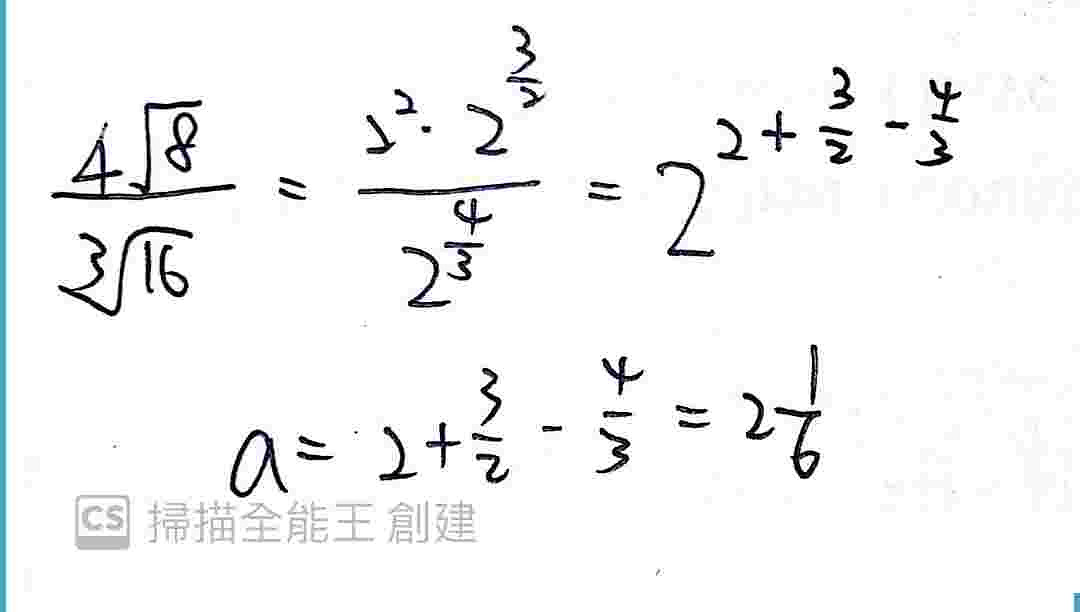 4√8 / ³√16 = 2² · 2^(3/2) / 2^(4/3) = 2^(2 + 3/2 - 4/3)
a = 2 + 3/2 - 4/3 = 2 1/6
CS 掃描全能王 創建